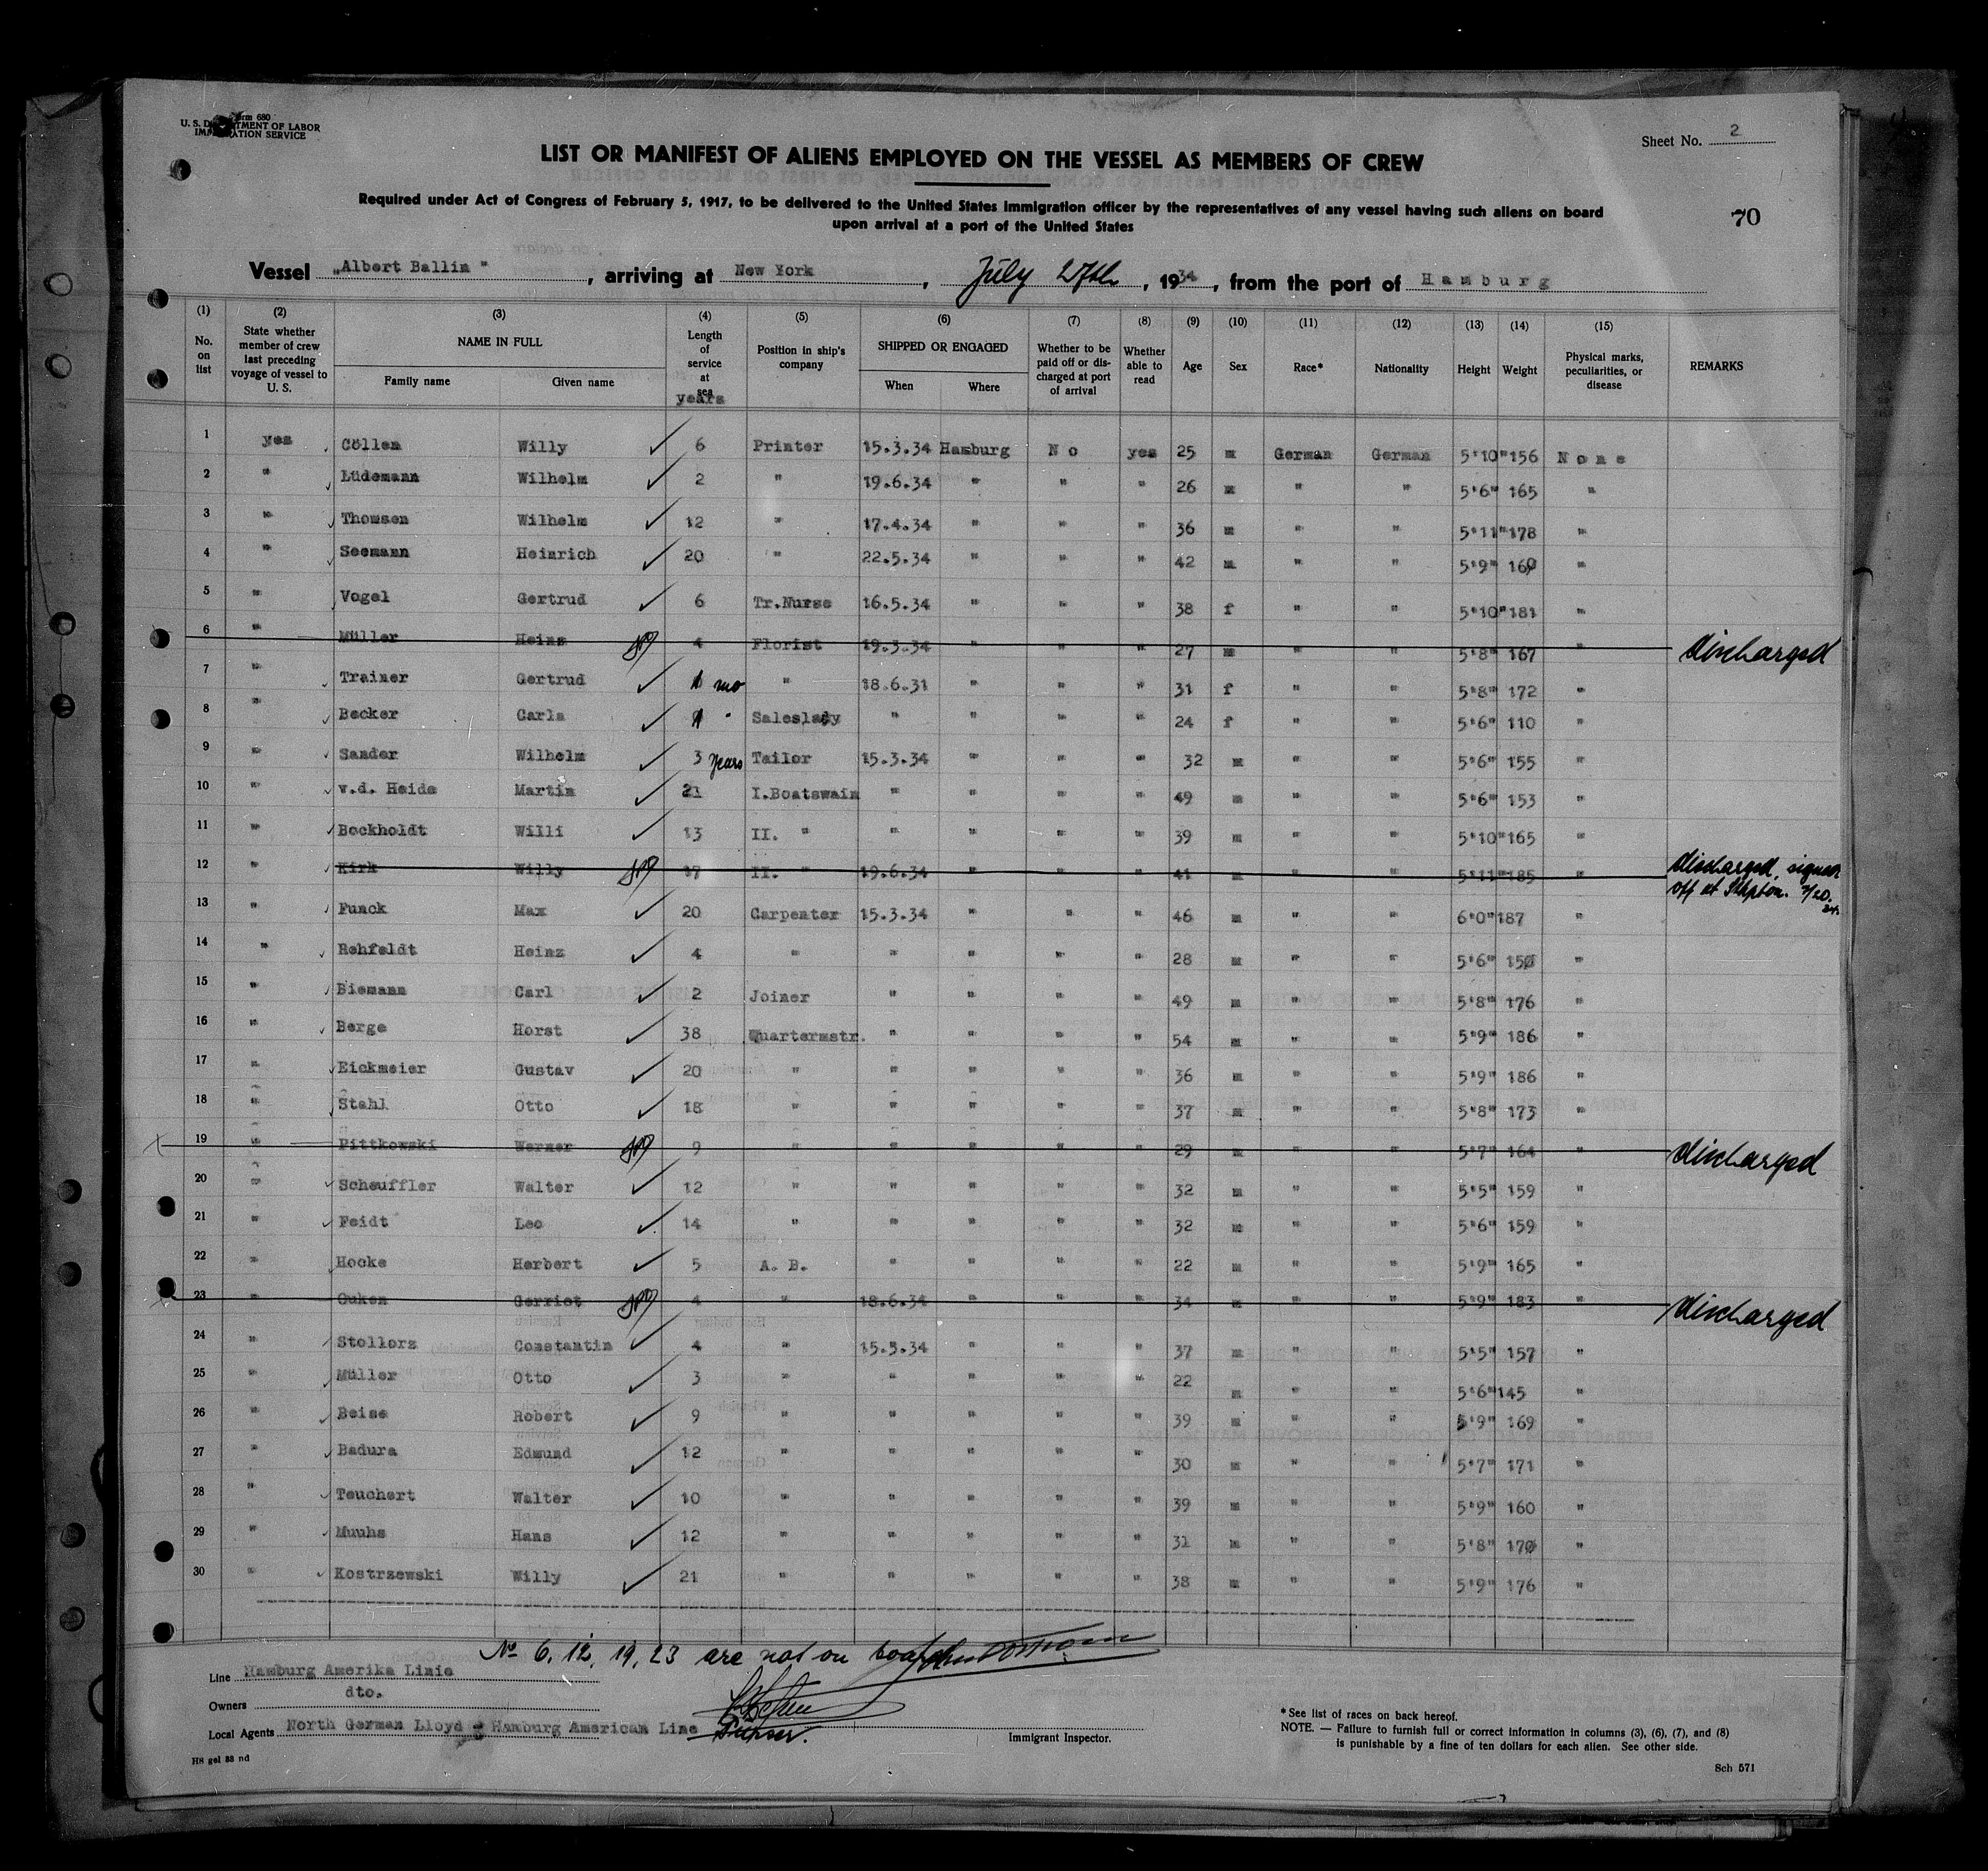 Form 680
U. S. DEPARTMENT OF LABOR
IMMIGRATION SERVICE
Sheet No. 2
LIST OR MANIFEST OF ALIENS EMPLOYED ON THE VESSEL AS MEMBERS OF CREW
Required under Act of Congress of February 5, 1917, to be delivered to the United States immigration officer by the representatives of any vessel having such aliens on board
upon arrival at a port of the United States
70
Vessel „Albert Ballin", arriving at New York, July 27th, 1934, from the port of Hamburg
(1) (2) (3) (4) (5) (6) (7) (8) (9) (10) (11) (12) (13) (14) (15)
No. on list | State whether member of crew last preceding voyage of vessel to U. S. | NAME IN FULL Family name Given name | Length of service at sea years | Position in ship's company | SHIPPED OR ENGAGED When Where | Whether to be paid off or discharged at port of arrival | Whether able to read | Age | Sex | Race* | Nationality | Height | Weight | Physical marks, peculiarities, or disease | REMARKS
1 yes Cöllen Willy 6 Printer 15.3.34 Hamburg No yes 25 m German German 5'10" 156 None
2 " Lüdemann Wilhelm 2 " 19.6.34 " " " 26 m " " 5'6" 165 "
3 " Thomsen Wilhelm 12 " 17.4.34 " " " 36 m " " 5'11" 178 "
4 " Seemann Heinrich 20 " 22.5.34 " " " 42 m " " 5'9" 160 "
5 " Vogel Gertrud 6 Tr.Nurse 16.5.34 " " " 38 f " " 5'10" 181 "
6 " Müller Heinz 4 Florist 19.3.34 " " " 27 m " " 5'8" 167 " discharged
7 " Trainer Gertrud 1 mo " 18.6.31 " " " 31 f " " 5'8" 172 "
8 " Becker Carla 1 " Saleslady " " " " 24 f " " 5'6" 110 "
9 " Sander Wilhelm 3 years Tailor 15.3.34 " " " 32 m " " 5'6" 155 "
10 " v.d. Heide Martin 21 I.Boatswain " " " " 49 m " " 5'6" 153 "
11 " Bockholdt Willi 13 II. " " " " " 39 m " " 5'10" 165 "
12 " Kirk Willy 17 II. " 19.6.34 " " " 41 m " " 5'11" 185 " discharged, signed
off at 7/20.
34.
13 " Funck Max 20 Carpenter 15.3.34 " " " 46 m " " 6'0" 187 "
14 " Rehfeldt Heinz 4 " " " " " 28 m " " 5'6" 150 "
15 " Biemann Carl 2 Joiner " " " " 49 m " " 5'8" 176 "
16 " Berge Horst 38 Quartermstr. " " " " 54 m " " 5'9" 186 "
17 " Eickmeier Gustav 20 " " " " " 36 m " " 5'9" 186 "
18 " Stahl Otto 18 " " " " " 37 m " " 5'8" 173 "
19 " Pittkowski Werner 9 " " " " " 29 m " " 5'7" 164 " discharged
20 " Scheuffler Walter 12 " " " " " 32 m " " 5'5" 159 "
21 " Feidt Leo 14 " " " " " 32 m " " 5'6" 159 "
22 " Hocke Herbert 5 A. B. " " " " 22 m " " 5'9" 165 "
23 " Ouken Gerriet 4 " 18.6.34 " " " 34 m " " 5'9" 183 " discharged
24 " Stollorz Constantin 4 " 15.3.34 " " " 37 m " " 5'5" 157 "
25 " Müller Otto 3 " " " " " 22 m " " 5'6" 145 "
26 " Beise Robert 9 " " " " " 39 m " " 5'9" 169 "
27 " Badura Edmund 12 " " " " " 30 m " " 5'7" 171 "
28 " Teuchert Walter 10 " " " " " 39 m " " 5'9" 160 "
29 " Muuhs Hans 12 " " " " " 31 m " " 5'8" 170 "
30 " Kostrzewski Willy 21 " " " " " 38 m " " 5'9" 176 "
No 6, 12, 19, 23 are not on board
Line Hamburg Amerika Linie
Owners dto.
Local Agents North German Lloyd - Hamburg American Line
Immigrant Inspector.
*See list of races on back hereof.
NOTE. — Failure to furnish full or correct information in columns (3), (6), (7), and (8)
is punishable by a fine of ten dollars for each alien. See other side.
H8 gel 88 nd
Sch 571